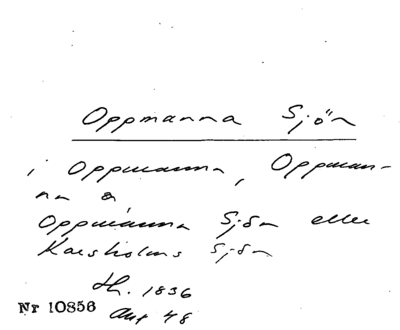 Oppmanna Sjön
i Oppmanna, Oppman-
na å
Oppmanna Sjön eller
Karsholms Sjön
1836
Nr 10856 48